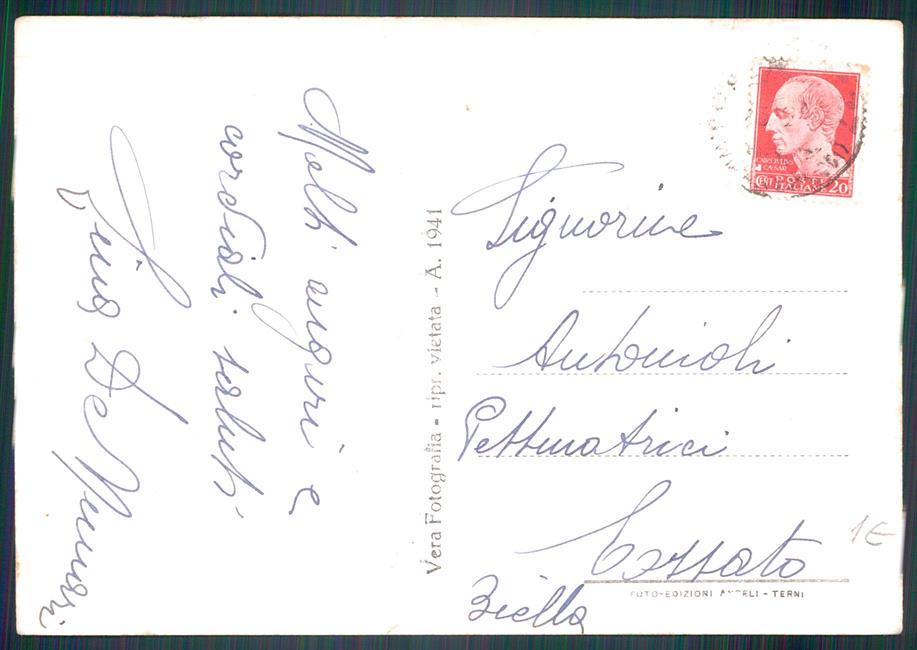 Molti auguri e
cordiali saluti
Gino De
Vera Fotografia - ripr. vietata - A. 1941
CAIVS IVLIVS
CAESAR
CENT POSTE ITALIANE 20
Signorine
Antonioli
Pettinatrici
Cossato
Biella
FOTO-EDIZIONI ANGELI - TERNI
1€